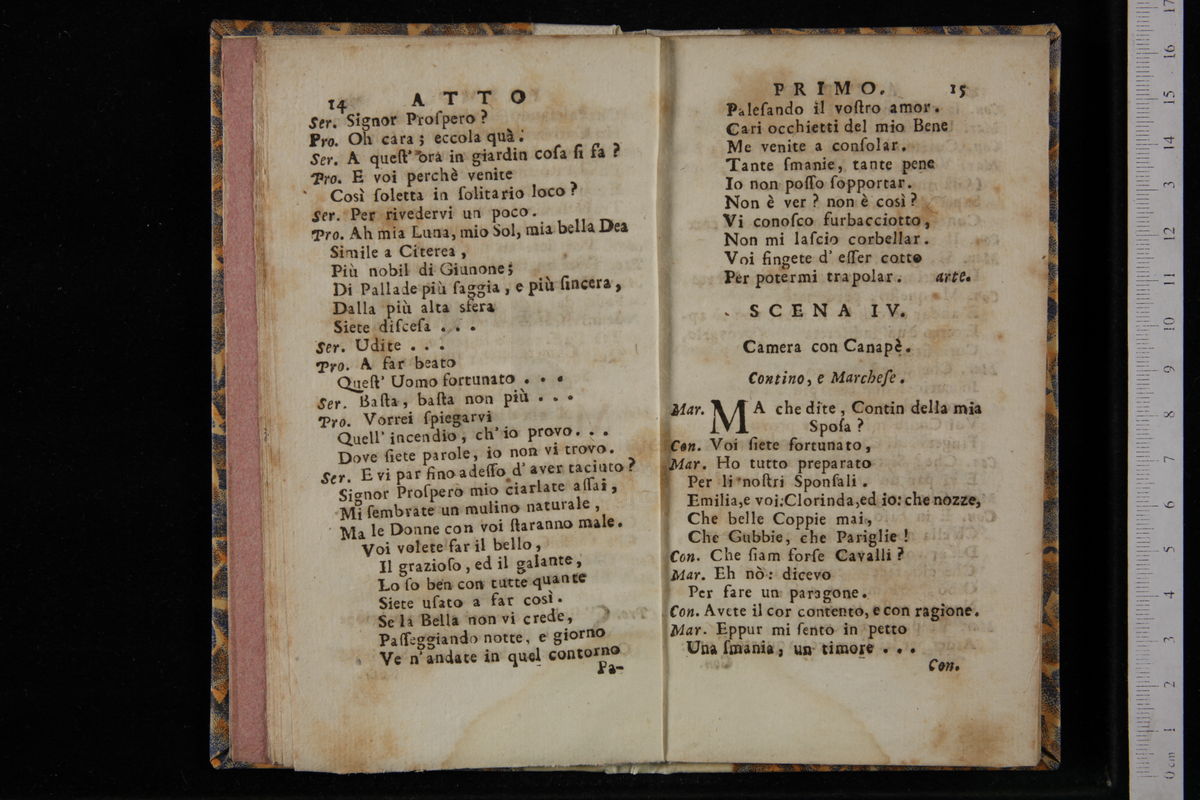 14 ATTO
Ser. Signor Proſpero ?
Pro. Oh cara ; eccola quà .
Ser. A queſt' ora in giardin coſa ſi fa ?
Pro. E voi perchè venite
Così ſoletta in ſolitario loco ?
Ser. Per rivedervi un poco .
Pro. Ah mia Luna, mio Sol, mia bella Dea
Simile a Citerea ,
Più nobil di Giunone ;
Di Pallade più ſaggia , e più ſincera ,
Dalla più alta sfera
Siete diſceſa . . .
Ser. Udite . . .
Pro. A far beato
Queſt' Uomo fortunato . . .
Ser. Baſta , baſta non più . . .
Pro. Vorrei ſpiegarvi
Quell' incendio , ch' io provo . . .
Dove ſiete parole, io non vi trovo .
Ser. E vi par fino adeſſo d' aver taciuto ?
Signor Proſpero mio ciarlate aſſai ,
Mi ſembrate un mulino naturale ,
Ma le Donne con voi ſtaranno male .
Voi volete far il bello ,
Il grazioſo , ed il galante ,
Lo ſo ben con tutte quante
Siete uſato a far così .
Se la Bella non vi crede ,
Paſſeggiando notte , e giorno
Ve n' andate in quel contorno
Pa-
PRIMO. 15
Paleſando il voſtro amor .
Cari occhietti del mio Bene
Me venite a conſolar .
Tante ſmanie , tante pene
Io non poſſo ſopportar .
Non è ver ? non è così ?
Vi conoſco furbacciotto ,
Non mi laſcio corbellar .
Voi fingete d' eſſer cotto
Per potermi trapolar . arte.
SCENA IV.
Camera con Canapè .
Contino , e Marcheſe .
Mar. MA che dite , Contin della mia
Spoſa ?
Con. Voi ſiete fortunato ,
Mar. Ho tutto preparato
Per li noſtri Sponſali .
Emilia, e voi ; Clorinda, ed io : che nozze,
Che belle Coppie mai ,
Che Gubbie, che Pariglie !
Con. Che ſiam forſe Cavalli ?
Mar. Eh nò : dicevo
Per fare un paragone .
Con. Avete il cor contento, e con ragione .
Mar. Eppur mi ſento in petto
Una ſmania , un timore . . .
Con.
0 cm 1 2 3 4 5 6 7 8 9 10 11 12 13 14 15 16 17